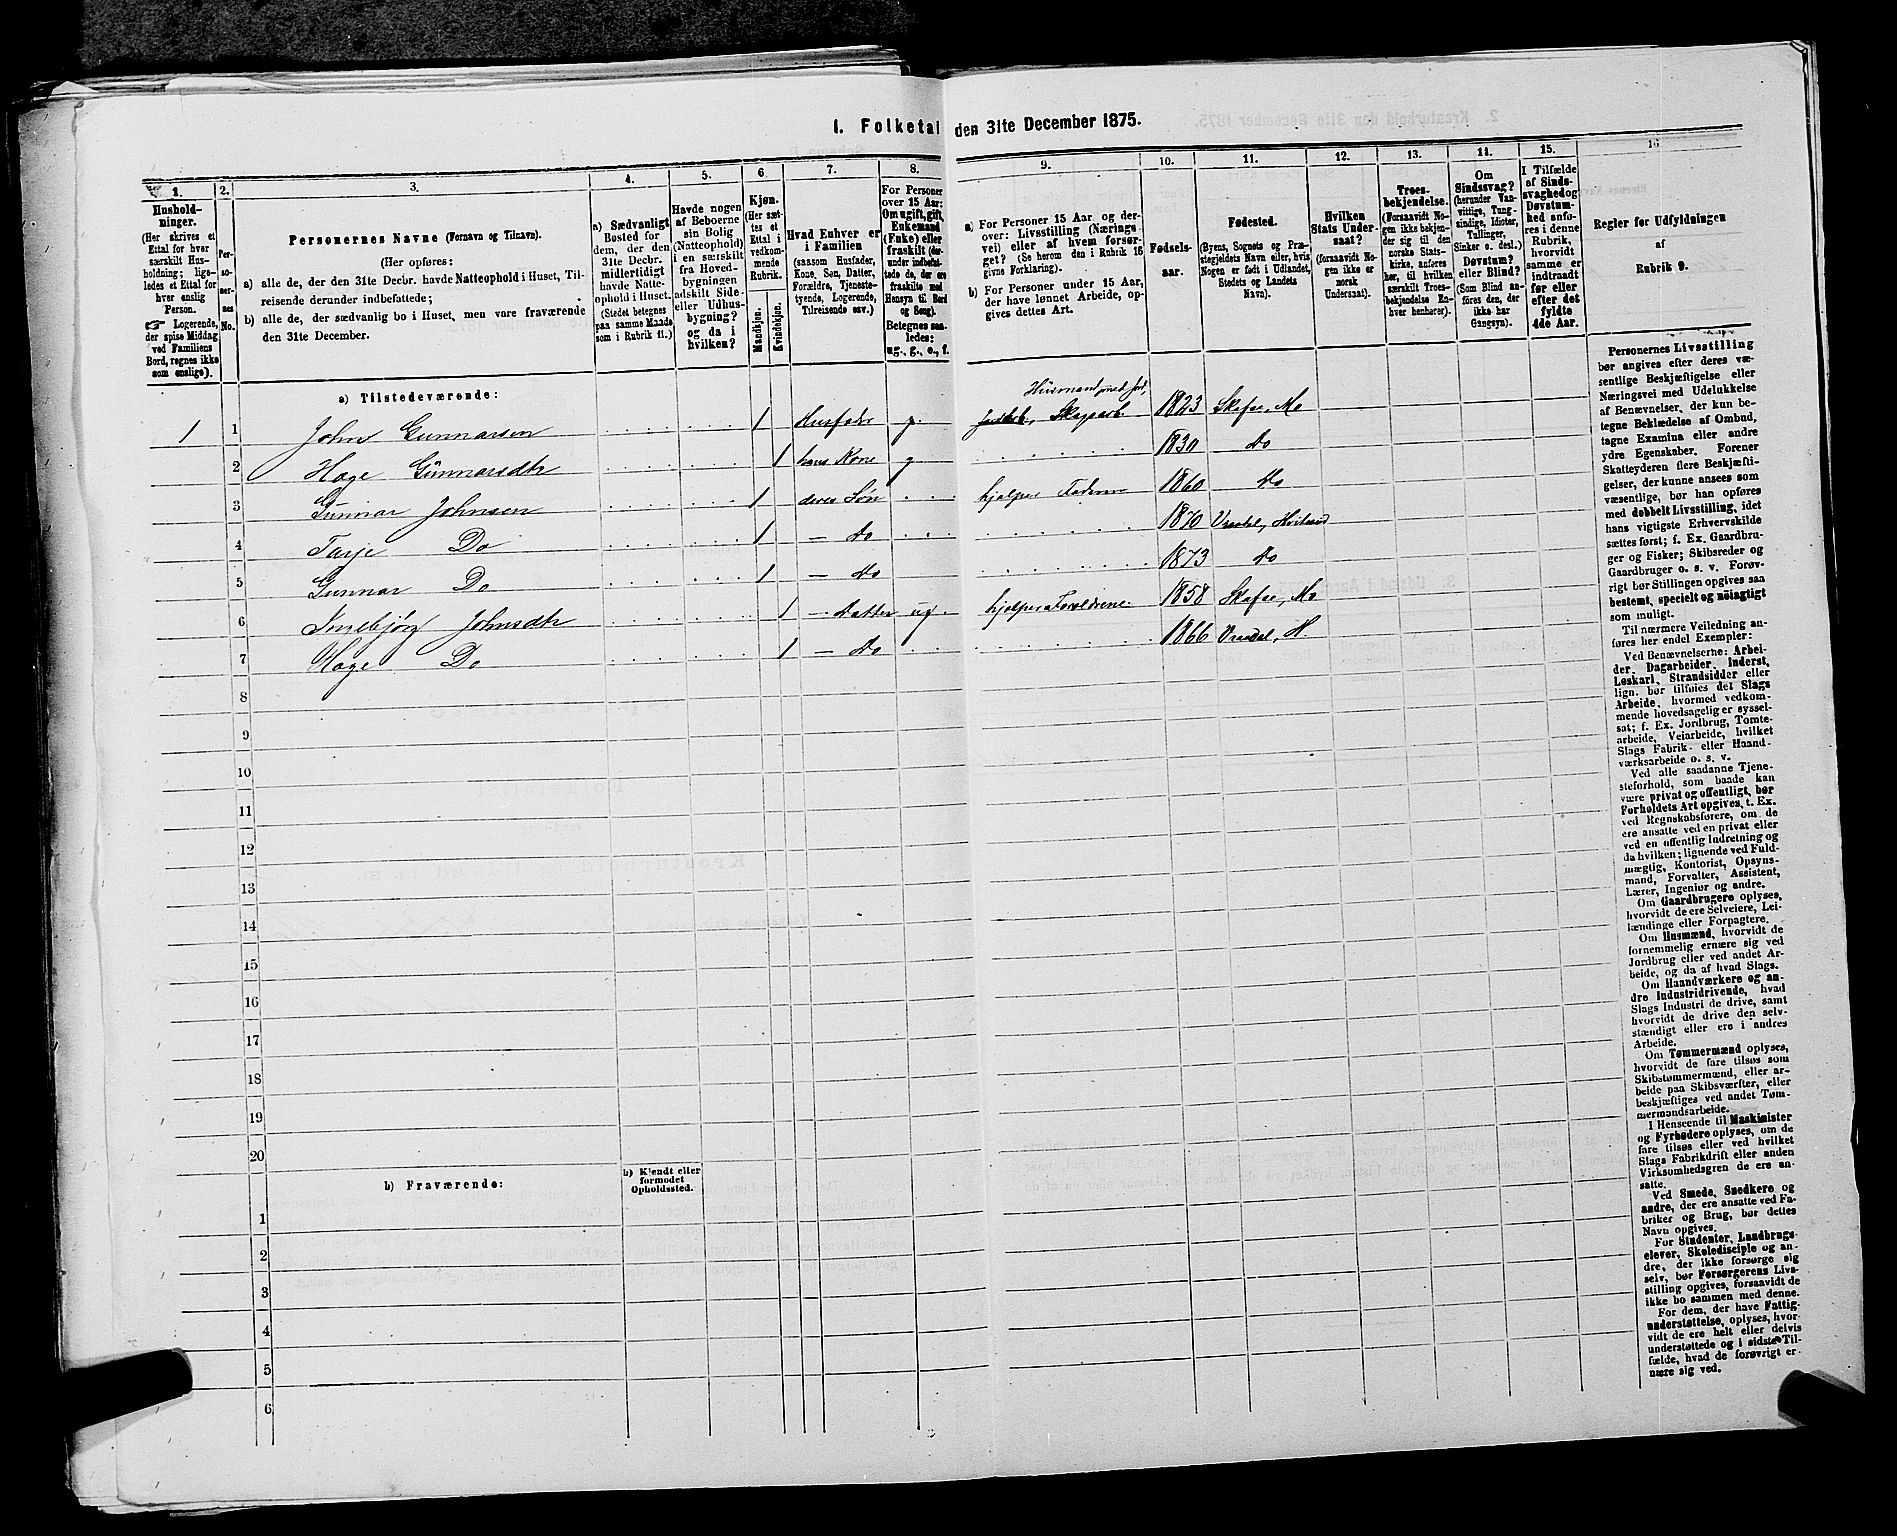 1. Folketal den 31te December 1875.
1.
2.
3.
4.
5.
6.
7.
8.
9.
10.
11.
12.
13.
14.
15.
16
Hushold-
ninger.
(Her skrives et
Ettal for hver
særskilt Hus-
holdning; lige-
ledes et Ettal for
hver enslig
Person.
☞ Logerende,
der spise Middag
ved Familiens
Bord, regnes ikke
som enslige).
Per-
so-
ner-
nes
No.
Personernes Navne (Fornavn og Tilnavn).
(Her opføres:
a) alle de, der den 31te Decbr. havde Natteophold i Huset, Til-
reisende derunder indbefattede;
b) alle de, der sædvanlig bo i Huset, men vare fraværende
den 31te December.
a) Sædvanligt
Bosted for
dem, der den
31te Decbr.
midlertidigt
havde Natte-
ophold i Huset.
(Stedet betegnes
paa samme Maade
som i Rubrik 11.)
Havde nogen
af Beboerne
sin Bolig
(Natteophold)
i en særskilt
fra Hoved-
bygningen
adskilt Side-
eller Udhus-
bygning?
og da i
hvilken?
Kjøn.
(Her sæt-
tes et
Ettal i
vedkom-
mende
Rubrik.
Mandskjøn.
Kvindekjøn.
Hvad Enhver er
i Familien
(saasom Husfader,
Kone, Søn, Datter,
Forældre, Tjeneste-
tyende, Logerende,
Tilreisende osv.).
For Personer
over 15 Aar:
Om ugift, gift,
Enkemand
(Enke) eller
fraskilt (der-
under indbefat-
tede de, der ere
fraskilte med
Hensyn til Bord
og Seng).
Betegnes saa-
ledes:
ug., g., e., f.
a) For Personer 15 Aar og der-
over: Livsstilling (Nærings-
vei) eller af hvem forsør-
get? (Se herom den i Rubrik 16
givne Forklaring).
b) For Personer under 15 Aar,
der have lønnet Arbeide, op-
gives dettes Art.
Fødsels-
aar.
Fødested.
(Byens, Sognets og Præ-
stegjeldets Navn eller, hvis
Nogen er født i Udlandet,
Stedets og Landets
Navn).
Hvilken
Stats Under-
saat?
(forsaavidt No-
gen ikke er
norsk
Undersaat).
Troes-
bekjendelse.
(Forsaavidt No-
gen ikke bekjen-
der sig til den
norske Stats-
kirke, anføres
her, til hvilken
særskilt Troes-
bekjendelse En-
hver henhører).
Om
Sindssvag?
(herunder Van-
vittige, Tung-
sindige, Idioter,
Tullinger,
Sinker o. desl.)
Døvstum?
eller Blind?
(Som Blind an-
føres den, der
ikke har
Gangsyn).
I Tilfælde
af Sinds-
svaghed og
Døvstum-
hed anfø-
res i denne
Rubrik,
hvorvidt
samme er
indtraadt
før eller
efter det
fyldte
4de Aar.
Regler for Udfyldningen
af
Rubrik 9.
a) Tilstedeværende:
Husmand med Jord,
1 1 John Gunnarsen 1 Husfader g. Skogsarb. 1823 Skafse, Mo
2 Hage Gunnarsdtr 1 hans Kone g 1830 Do
3 Gunnar Johnsen 1 deres Søn hjelper Faderen 1860 Do
4 Tarje Do 1 — Do 1870 Vraadal, Hvitesed
5 Gunnar Do 1 — Do 1873 Do
6 Ingebjørg Johnsdtr 1 — Datter ug. hjelper Forældrene 1858 Skafse, Mo
7 Hage Do 1 — Do 1866 Vraadal, H.
8
9
10
11
12
13
14
15
16
17
18
19
20
b) Fraværende:
b) Kjendt eller
formodet
Opholdssted.
1
2
3
4
5
6
Personernes Livsstilling
bør angives efter deres væ-
sentlige Beskjæftigelse eller
Næringsvei med Udelukkelse
af Benævnelser, der kun be-
tegne Beklædelse af Ombud,
tagne Examina eller andre
ydre Egenskaber. Forener
Skatteyderen flere Beskjæfti-
gelser, der kunne ansees som
væsentlige, bør han opføres
med dobbelt Livsstilling, idet
hans vigtigste Erhvervskilde
sættes først; f. Ex. Gaardbru-
ger og Fisker; Skibsreder og
Gaardbruger o. s. v. Forøv-
rigt bør Stillingen opgives saa
bestemt, specielt og nøiagtigt
som muligt.
Til nærmere Veiledning an-
føres her endel Exempler:
Ved Benævnelserne: Arbei-
der, Dagarbeider, Inderst,
Løskarl, Strandsidder eller
lign. bør tilføies det Slags
Arbeide, hvormed vedkom-
mende hovedsagelig er syssel-
sat; f. Ex. Jordbrug, Tomte-
arbeide, Veiarbeide, hvilket
Slags Fabrik- eller Haand-
værksarbeide o. s. v.
Ved alle saadanne Tjene-
steforhold, som baade kan
være privat og offentligt, bør
Forholdets Art opgives, t. Ex.
ved Regnskabsførere, om de
ere ansatte ved en privat eller
ved en offentlig Indretning og
da hvilken; lignende ved Fuld-
mægtig, Kontorist, Opsyns-
mand, Forvalter, Assistent,
Lærer, Ingeniør og andre.
Om Gaardbrugere oplyses,
hvorvidt de ere Selveiere, Lei-
lændinge eller Forpagtere.
Om Husmænd, hvorvidt de
fornemmelig ernære sig ved
Jordbrug eller ved andet Ar-
beide, og da af hvad Slags.
Om Haandværkere og an-
dre Industridrivende, hvad
Slags Industri de drive, samt
hvorvidt de drive den selv-
stændigt eller ere i andres
Arbeide.
Om Tømmermænd oplyses,
hvorvidt de fare tilsøs som
Skibstømmermænd, eller ar-
beide paa Skibsværfter, eller
beskjæftiges ved andet Tøm-
mermandsarbeide.
I Henseende til Maskinister
og Fyrbødere oplyses, om de
fare tilsøs eller ved hvilket
Slags Fabrikdrift eller anden
Virksomhedsgren de ere an-
satte.
Ved Smede, Snedkere og
andre, der ere ansatte ved Fa-
briker og Brug, bør dettes
Navn opgives.
For Studenter, Landbrugs-
elever, Skoledisciple og an-
dre, der ikke forsørge sig
selv, bør Forsørgerens Livs-
stilling opgives, forsaavidt de
ikke bo sammen med denne.
For dem, der have Fattig-
understøttelse, oplyses, hvor-
vidt de ere helt eller delvis
understøttede og i sidste Til-
fælde, hvad de forøvrigt er-
nære sig ved.